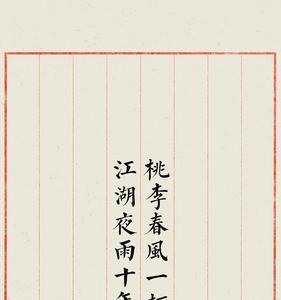 桃李春風一
江湖夜雨十年